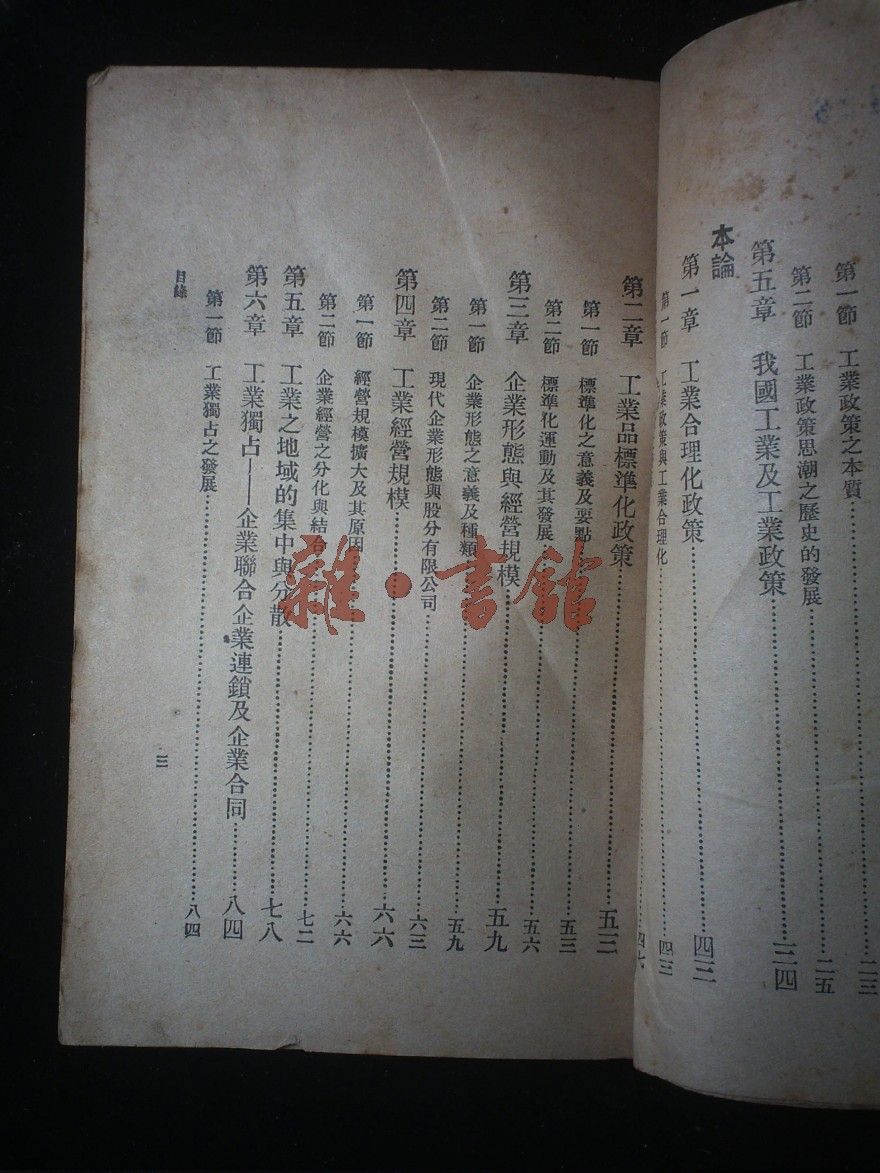 第一節 工業政策之本質 二三
第二節 工業政策思潮之歷史的發展 二五
第五章 我國工業及工業政策 三四
本論
第一章 工業合理化政策 四三
第一節 工業政策與工業合理化 四三
四七
第二章 工業品標準化政策 五三
第一節 標準化之意義及要點 五三
第二節 標準化運動及其發展 五六
第三章 企業形態與經營規模 五九
第一節 企業形態之意義及種類 五九
第二節 現代企業形態與股分有限公司 六三
第四章 工業經營規模 六六
第一節 經營規模擴大及其原因 六六
第二節 企業經營之分化與結合 七二
第五章 工業之地域的集中與分散 七八
第六章 工業獨占——企業聯合企業連鎖及企業合同 八四
第一節 工業獨占之發展 八四
目錄
三
雜·書館